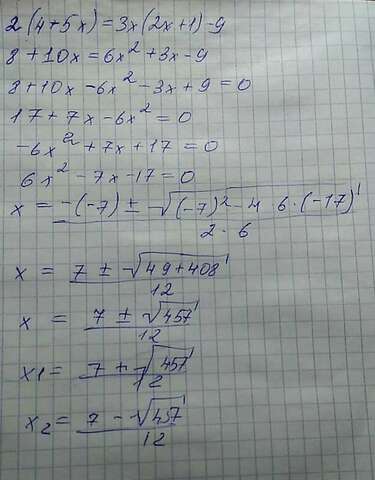 2(4+5x)=3x(2x+1)-9
8+10x=6x²+3x-9
8+10x-6x²-3x+9=0
17+7x-6x²=0
-6x²+7x+17=0
6x²-7x-17=0
x = (-(-7) ± √((-7)² - 4 6·(-17))) / (2·6)
x = (7 ± √(49+408)) / 12
x = (7 ± √457) / 12
x1 = (7 + √457) / 12
x2 = (7 - √457) / 12